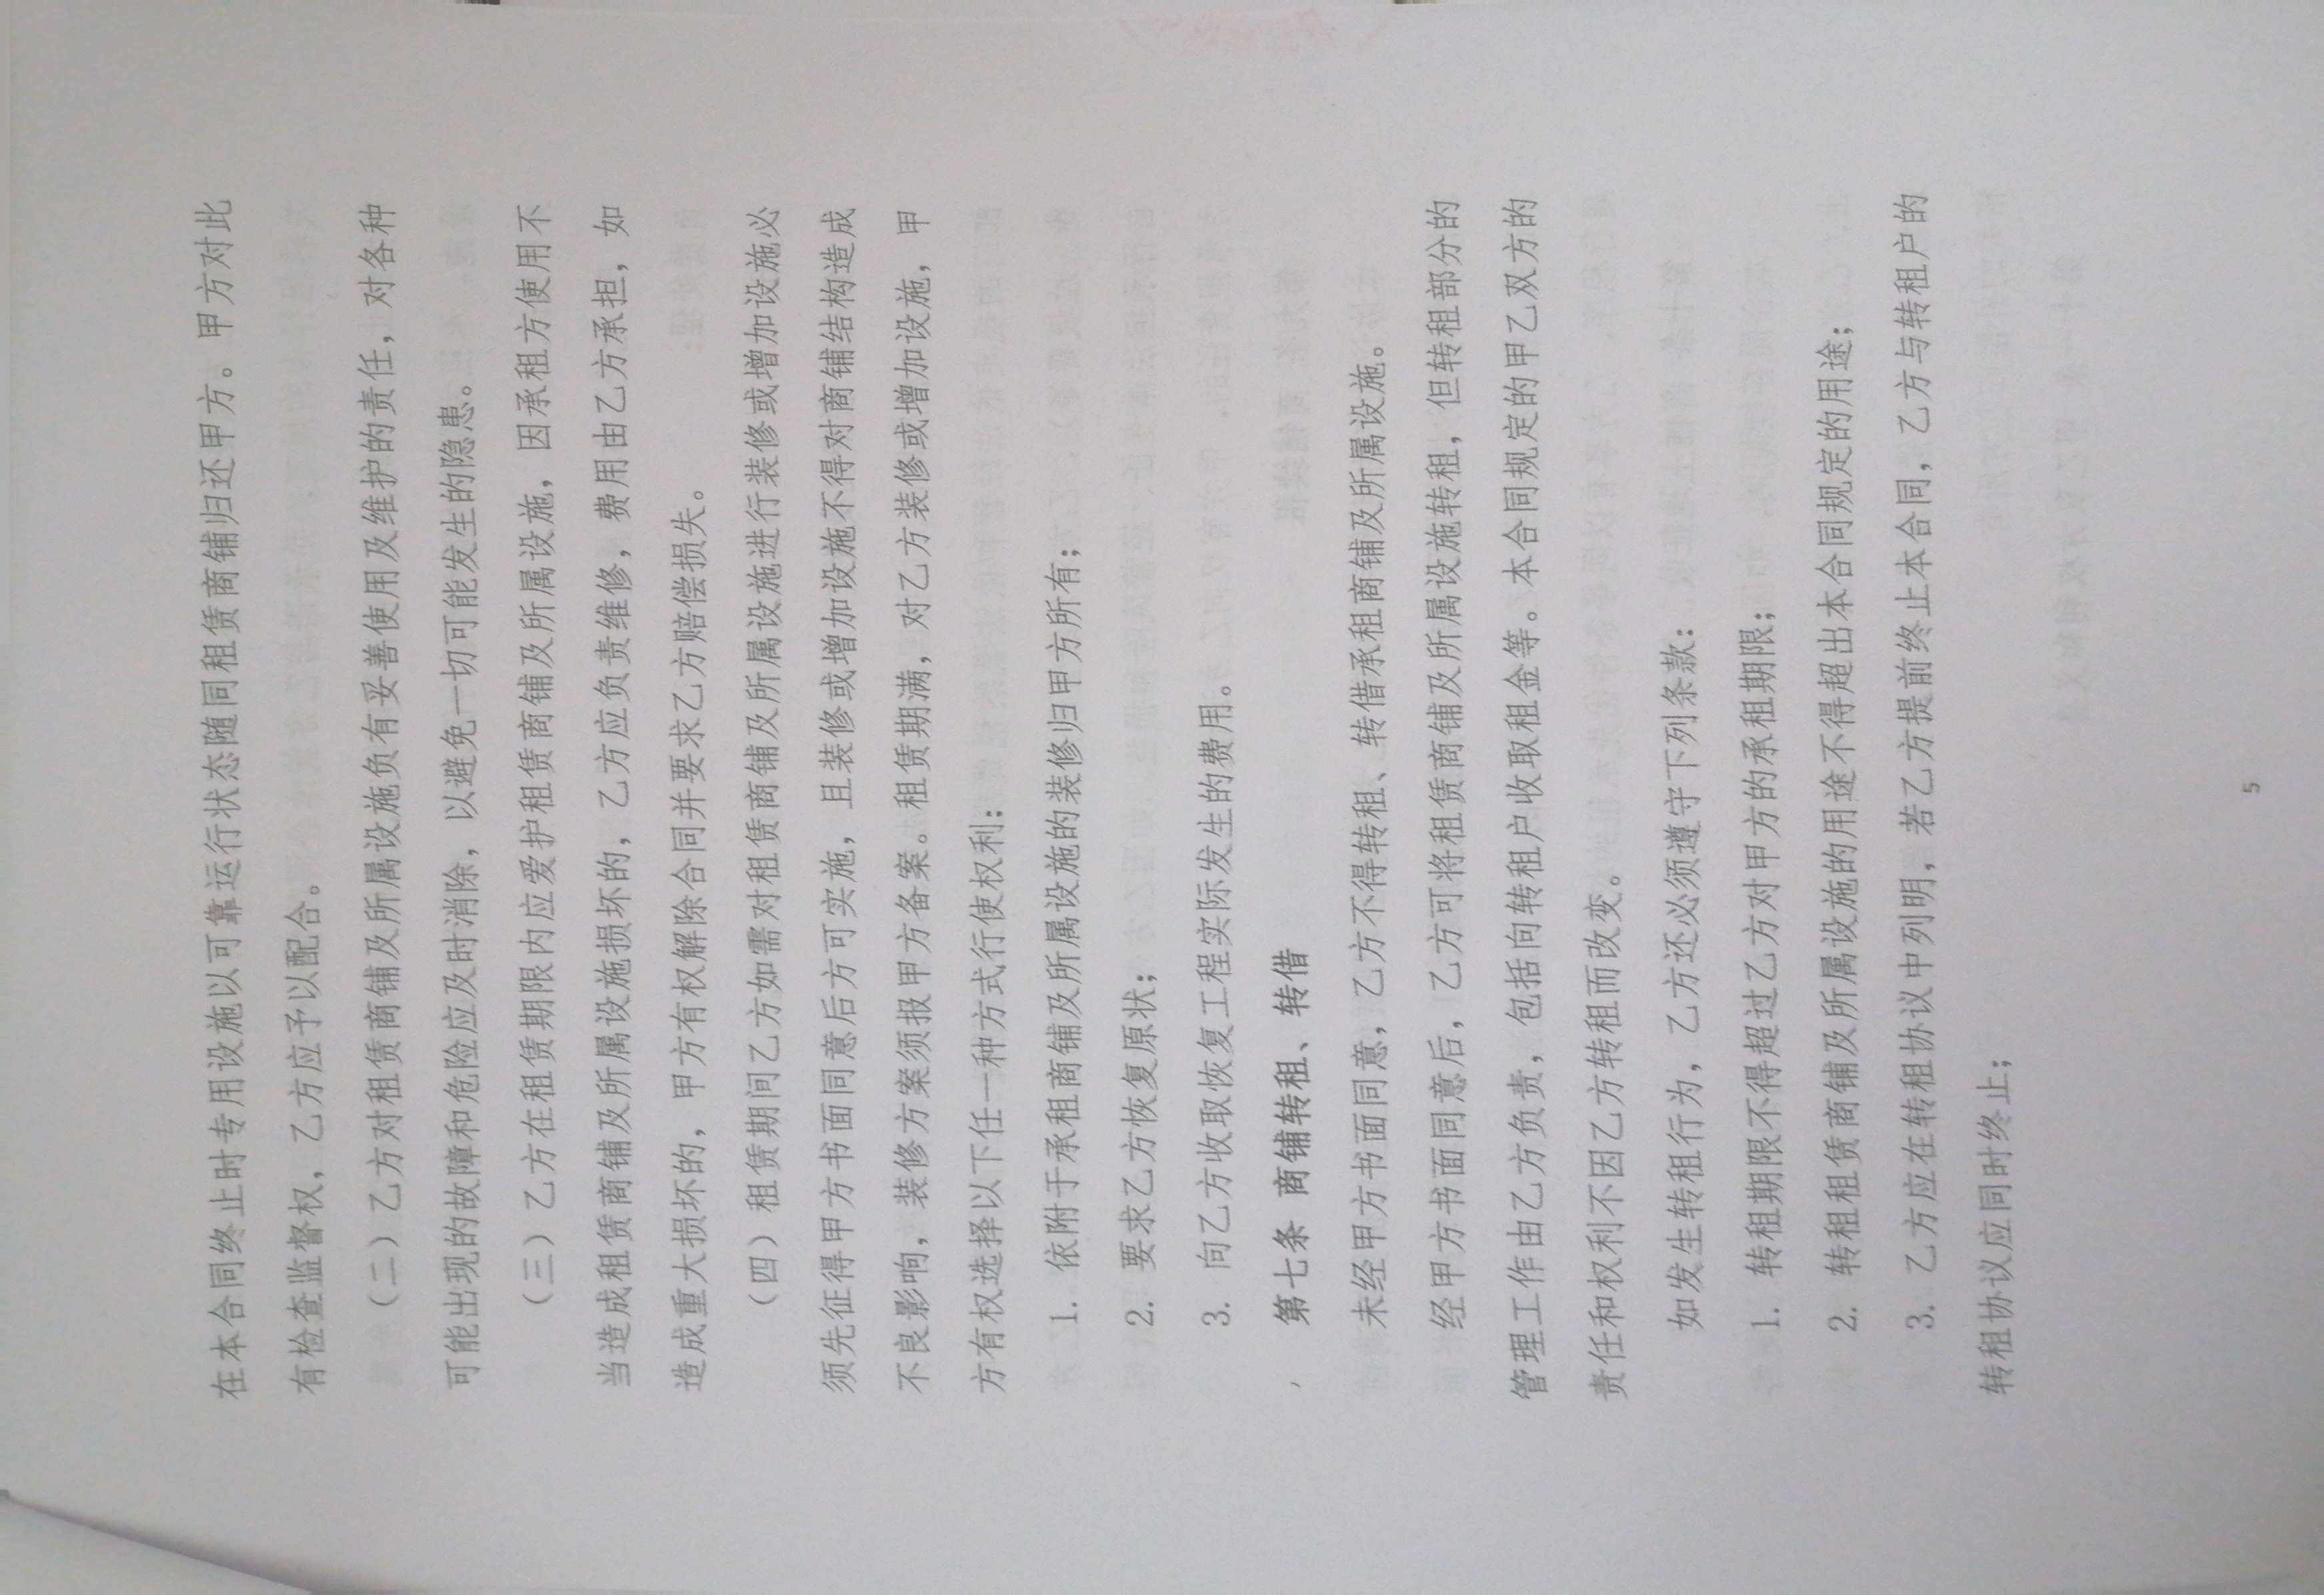 在本合同终止时专用设施以可靠运行状态随同租赁商铺归还甲方。甲方对此
有检查监督权，乙方应予以配合。
（二）乙方对租赁商铺及所属设施负有妥善使用及维护的责任，对各种
可能出现的故障和危险应及时消除，以避免一切可能发生的隐患。
（三）乙方在租赁期限内应爱护租赁商铺及所属设施，因承租方使用不
当造成租赁商铺及所属设施损坏的，乙方应负责维修，费用由乙方承担，如
造成重大损坏的，甲方有权解除合同并要求乙方赔偿损失。
（四）租赁期间乙方如需对租赁商铺及所属设施进行装修或增加设施必
须先征得甲方书面同意后方可实施，且装修或增加设施不得对商铺结构造成
不良影响，装修方案须报甲方备案。租赁期满，对乙方装修或增加设施，甲
方有权选择以下任一种方式行使权利：
1. 依附于承租商铺及所属设施的装修归甲方所有；
2. 要求乙方恢复原状；
3. 向乙方收取恢复工程实际发生的费用。
第七条 商铺转租、转借
未经甲方书面同意，乙方不得转租、转借承租商铺及所属设施。
经甲方书面同意后，乙方可将租赁商铺及所属设施转租，但转租部分的
管理工作由乙方负责，包括向转租户收取租金等。本合同规定的甲乙双方的
责任和权利不因乙方转租而改变。
如发生转租行为，乙方还必须遵守下列条款：
1. 转租期限不得超过乙方对甲方的承租期限；
2. 转租租赁商铺及所属设施的用途不得超出本合同规定的用途；
3. 乙方应在转租协议中列明，若乙方提前终止本合同，乙方与转租户的
转租协议应同时终止；
5